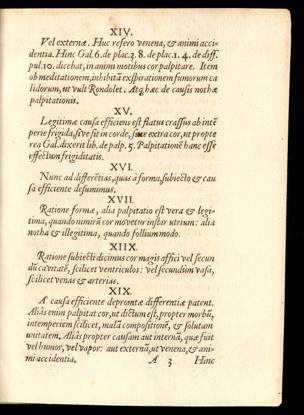 XIV.
Vel externæ. Huc refero venena, & animi acci-
dentia. Hinc Gal. 6. de plac. 3. 8. de plac. 1. 4. de diff.
pul. 10. dicebat, in animi motibus cor palpitare. Item
ob meditationem, inhibitã exspirationem fumorum ca
lidorum, ut vult Rondelet. Atq; hæc de causis nothæ
palpitationis.
XV.
Legitimæ causa efficiens est flatus crassus ab intẽ
perie frigida, sive sit in corde, sive extra cor, ut propte
rea Gal. dixerit lib. de palp. 5. Palpitationẽ hanc esse
effectum frigiditatis.
XVI.
Nunc ad differẽtias, quas à forma, subiecto & cau
sa efficiente desumimus.
XVII.
Ratione formæ, alia palpitatio est vera & legi-
tima, quando nimirũ cor movetur instar utrium: alia
notha & illegitima, quando follium modo.
XIIX.
Ratione subiecti dicimus cor magis affici vel secun
dũ cavitatẽ, scilicet ventriculos: vel secundum vasa,
scilicet venas & arterias.
XIX.
A causa efficiente depromtæ differentiæ patent.
Aliàs enim palpitat cor, ut dictum est, propter morbũ,
intemperiem scilicet, malã compositionẽ, & solutam
unitatem. Aliàs propter causam aut internã, quæ sunt
vel humor, vel vapor: aut externã, ut venena, & ani-
mi accidentia. A 3 Hinc